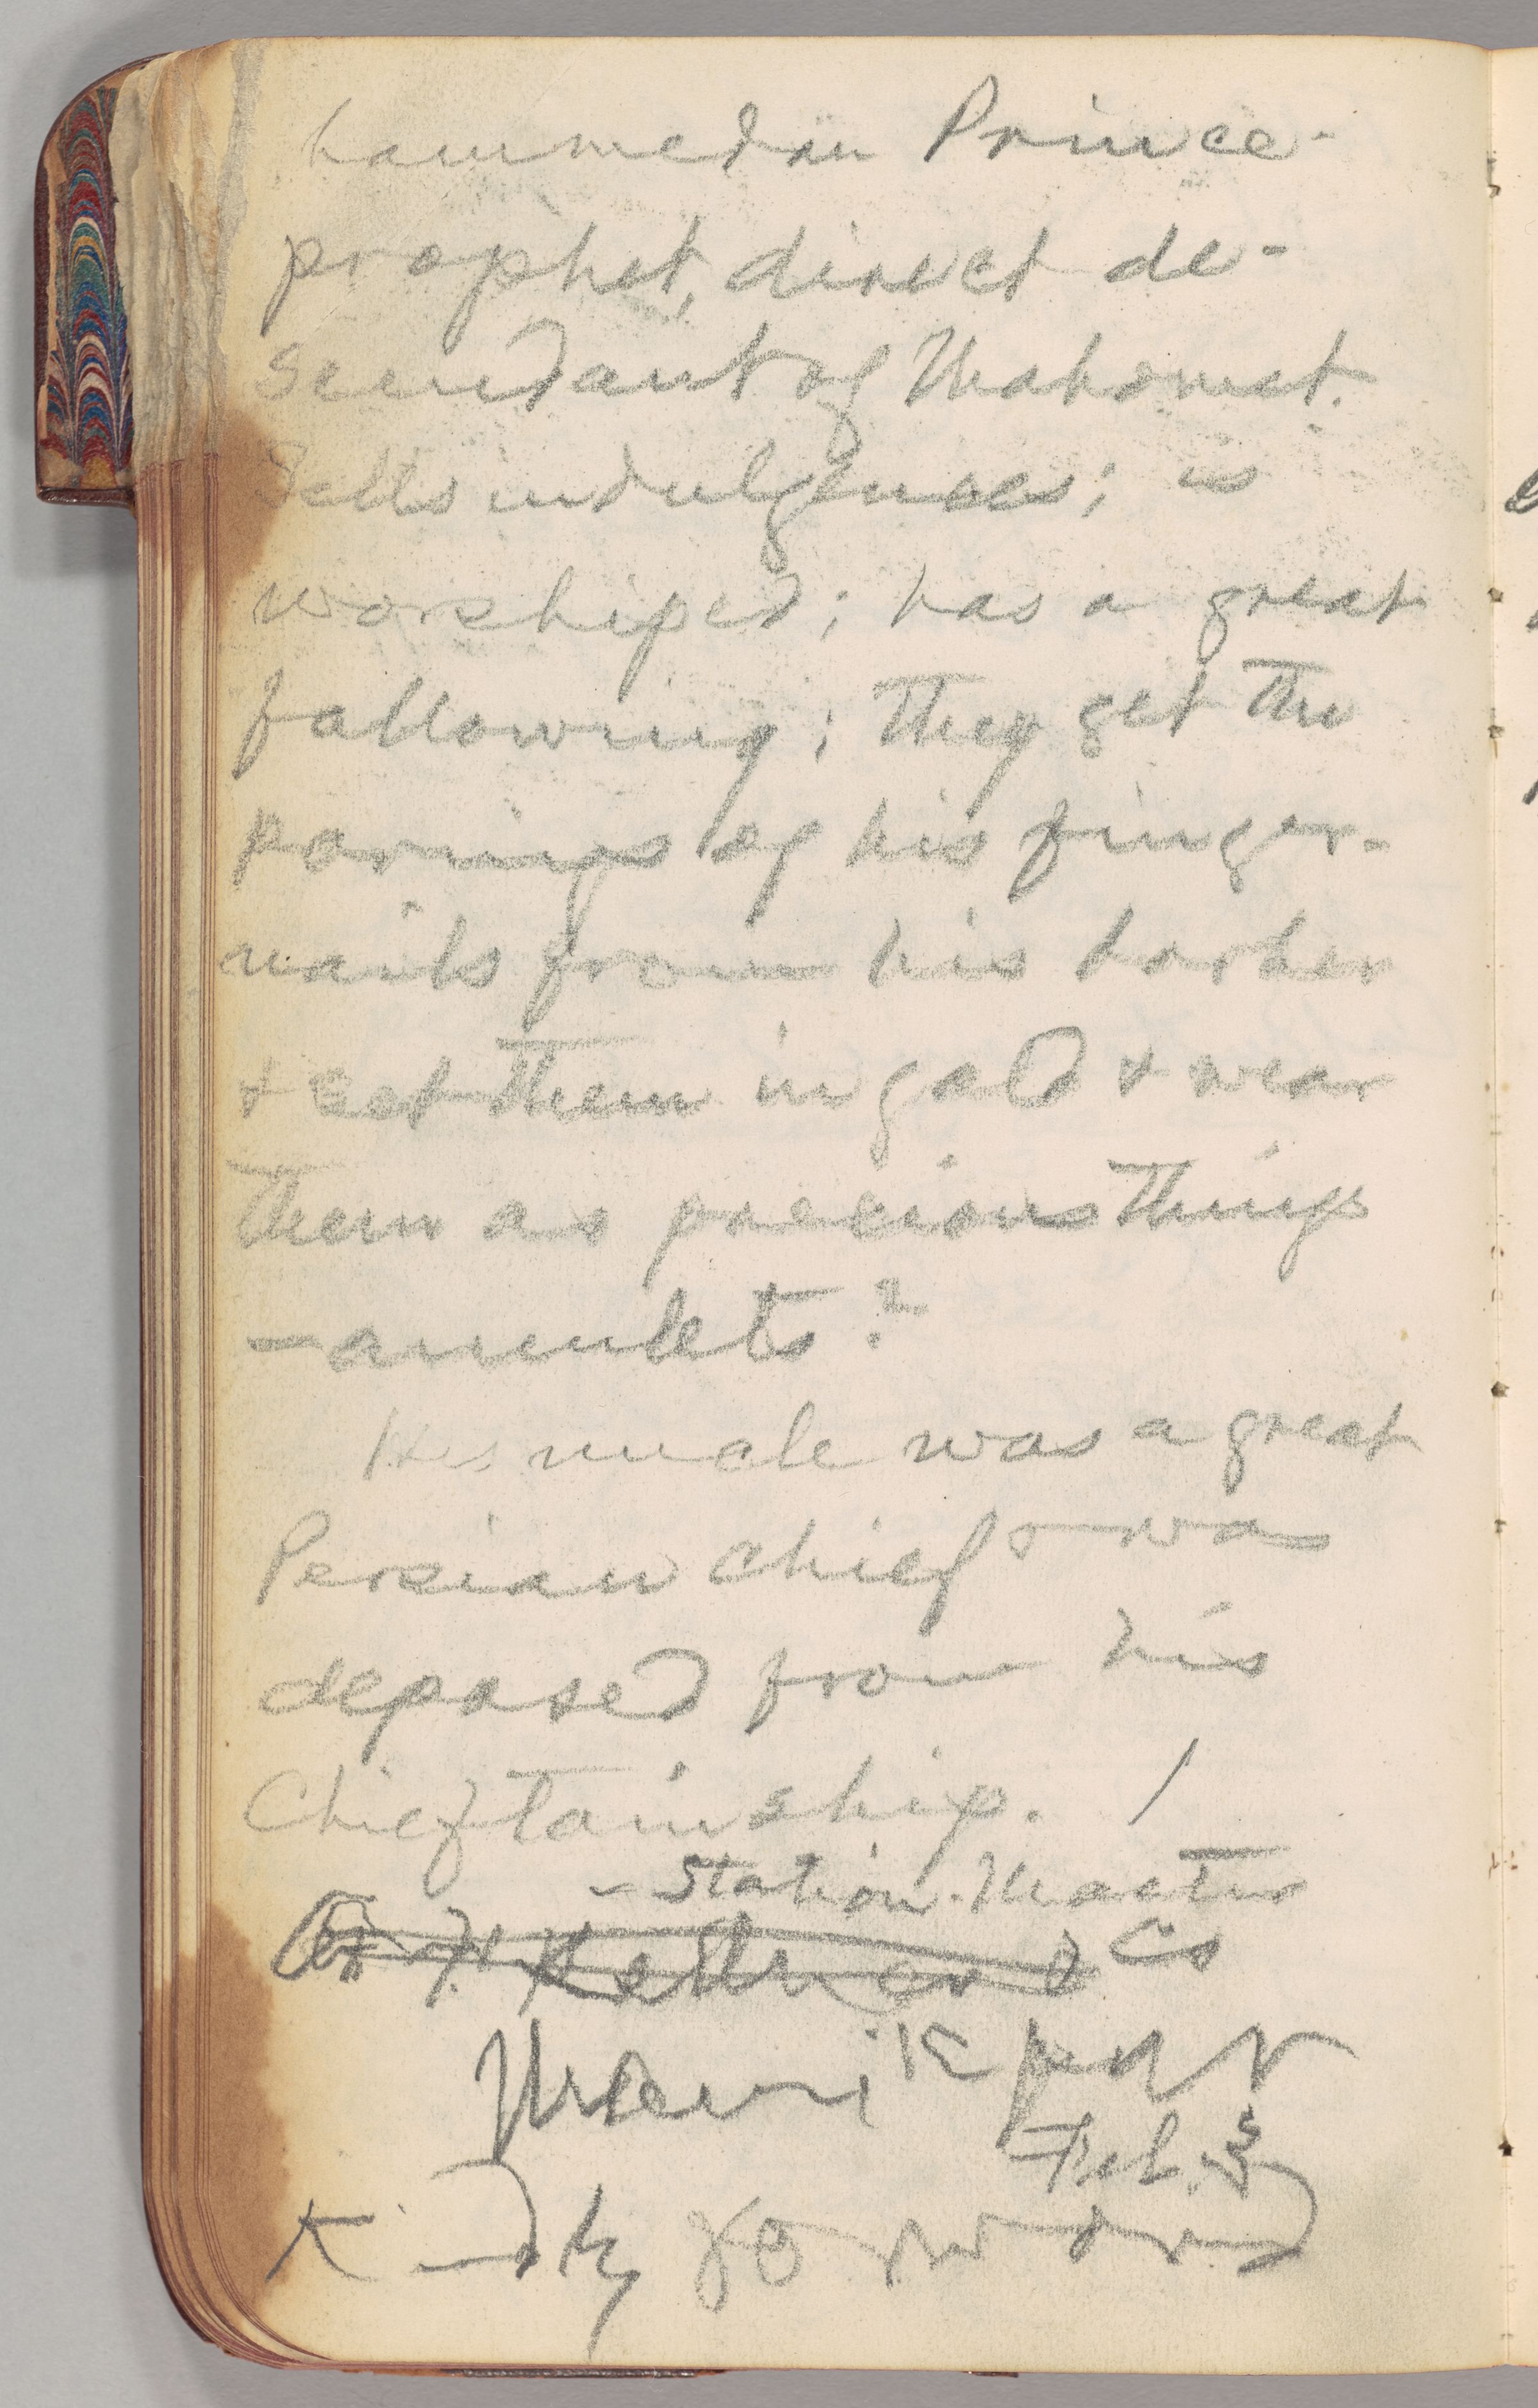 hammedan Prince-
prophet, direct de-
scendant of Mahomet.
Sells indulgences; is
worshiped; has a great
following; they get the
parings of his finger-
nails from his barber
& set them in gold & wear
them as precious things
—amulets?
His uncle was a great
Persian chief & was
deposed from his
Chieftainship. /
- Station-Master
& Co
Feb. 3
Kindly forward